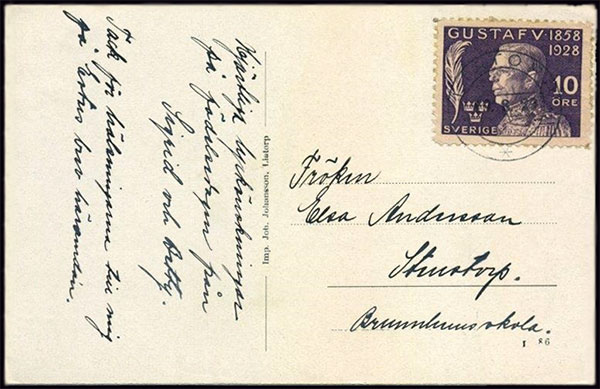 Hjärtliga lyckönskningar
på födelsedagen från
Sigrid och Betty.
Tack för hälsningarna till mig
på Ertas brev häromdan.
Imp. Joh. Johansson, Liatorp
GUSTAF V 1858
1928
10
ÖRE
SVERIGE
Fröken
Elsa Andersson
Stenstorp.
Brunnhemsskola.
I 86